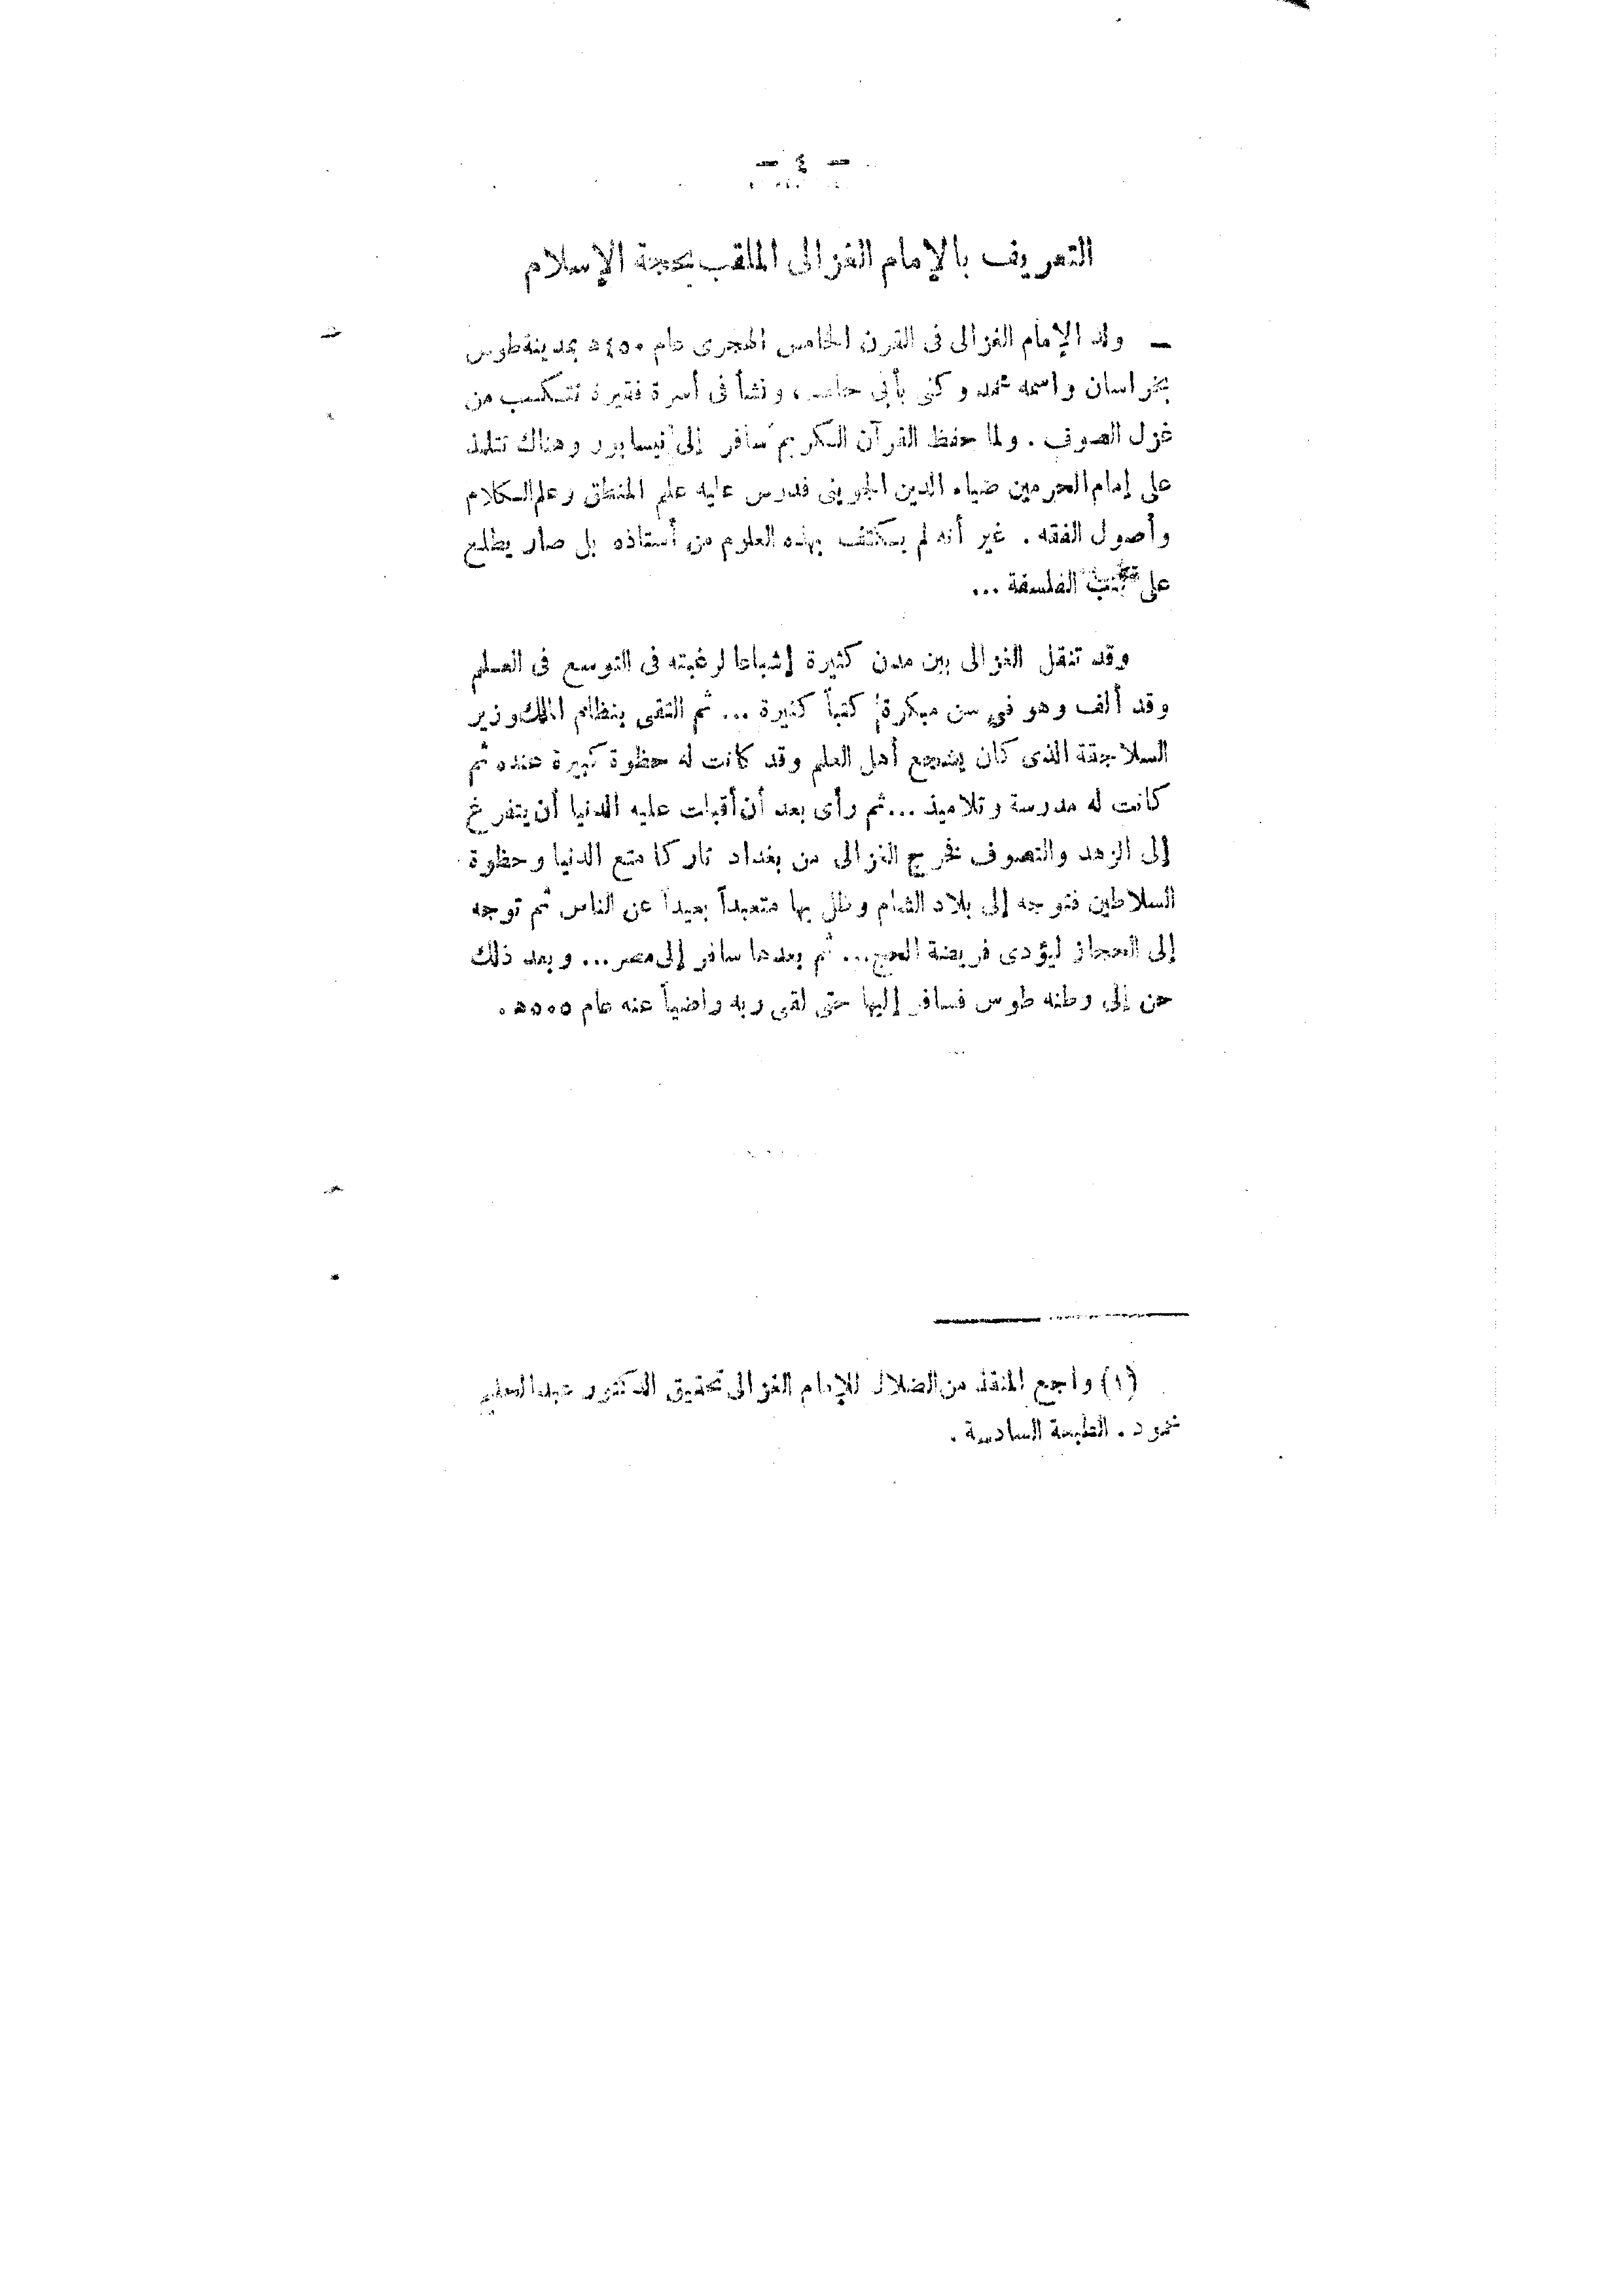 - ٤ -
التعريف بالإمام الغزالى الملقب بحجة الإسلام
ـ ولد الإمام الغزالى فى القرن الخامس الهجرى عام ٤٥٠ ه بمدينة طوس
بخراسان واسمه محمد وكنى بأبى حامد ، ونشأ فى أسرة فقيرة تتكسب من
غزل الصوف . ولما حفظ القرآن الكريم سافر إلى نيسابور وهناك تتلمذ
على إمام الحرمين ضياء الدين الجوينى فدرس عليه علم المنطق وعلم الكلام
وأصول الفقه . غير أنه لم يكتف بهذه العلوم من أستاذه بل صار يطلع
على كتب الفلسفة ...
وقد تنقل الغزالى بين مدن كثيرة إشباعا لرغبته فى التوسع فى العلم
وقد ألف وهو في سن مبكرة كتباً كثيرة ... ثم التقى بنظام الملك وزير
السلاجقة الذى كان يشجع أهل العلم وقد كانت له حظوة كبيرة عنده ثم
كانت له مدرسة وتلاميذ ... ثم رأى بعد أن أقبلت عليه الدنيا أن يتفرغ
إلى الزهد والتصوف فخرج الغزالى من بغداد تاركا متع الدنيا وحظوة
السلاطين فتوجه إلى بلاد الشام وظل بها متعبداً بعيداً عن الناس ثم توجه
إلى الحجاز ليؤدى فريضة الحج ... ثم بعدها سافر إلى مصر ... وبعد ذلك
حن إلى وطنه طوس فسافر إليها حتى لقى ربه راضياً عنه عام ٥٠٥ ه .
(١) راجع المنقذ من الضلال للإمام الغزالى تحقيق الدكتور عبد الحليم
محمود . الطبعة السادسة .